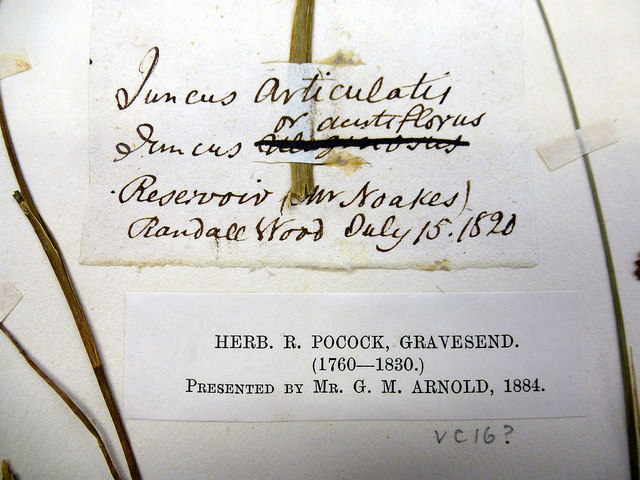 Juncus Articulatis
or acutiflorus
Juncus uliginosus
Reservoir (Mr Noakes)
Randall Wood July 15. 1820
HERB. R. POCOCK, GRAVESEND.
(1760—1830.)
PRESENTED BY MR. G. M. ARNOLD, 1884.
VC16?